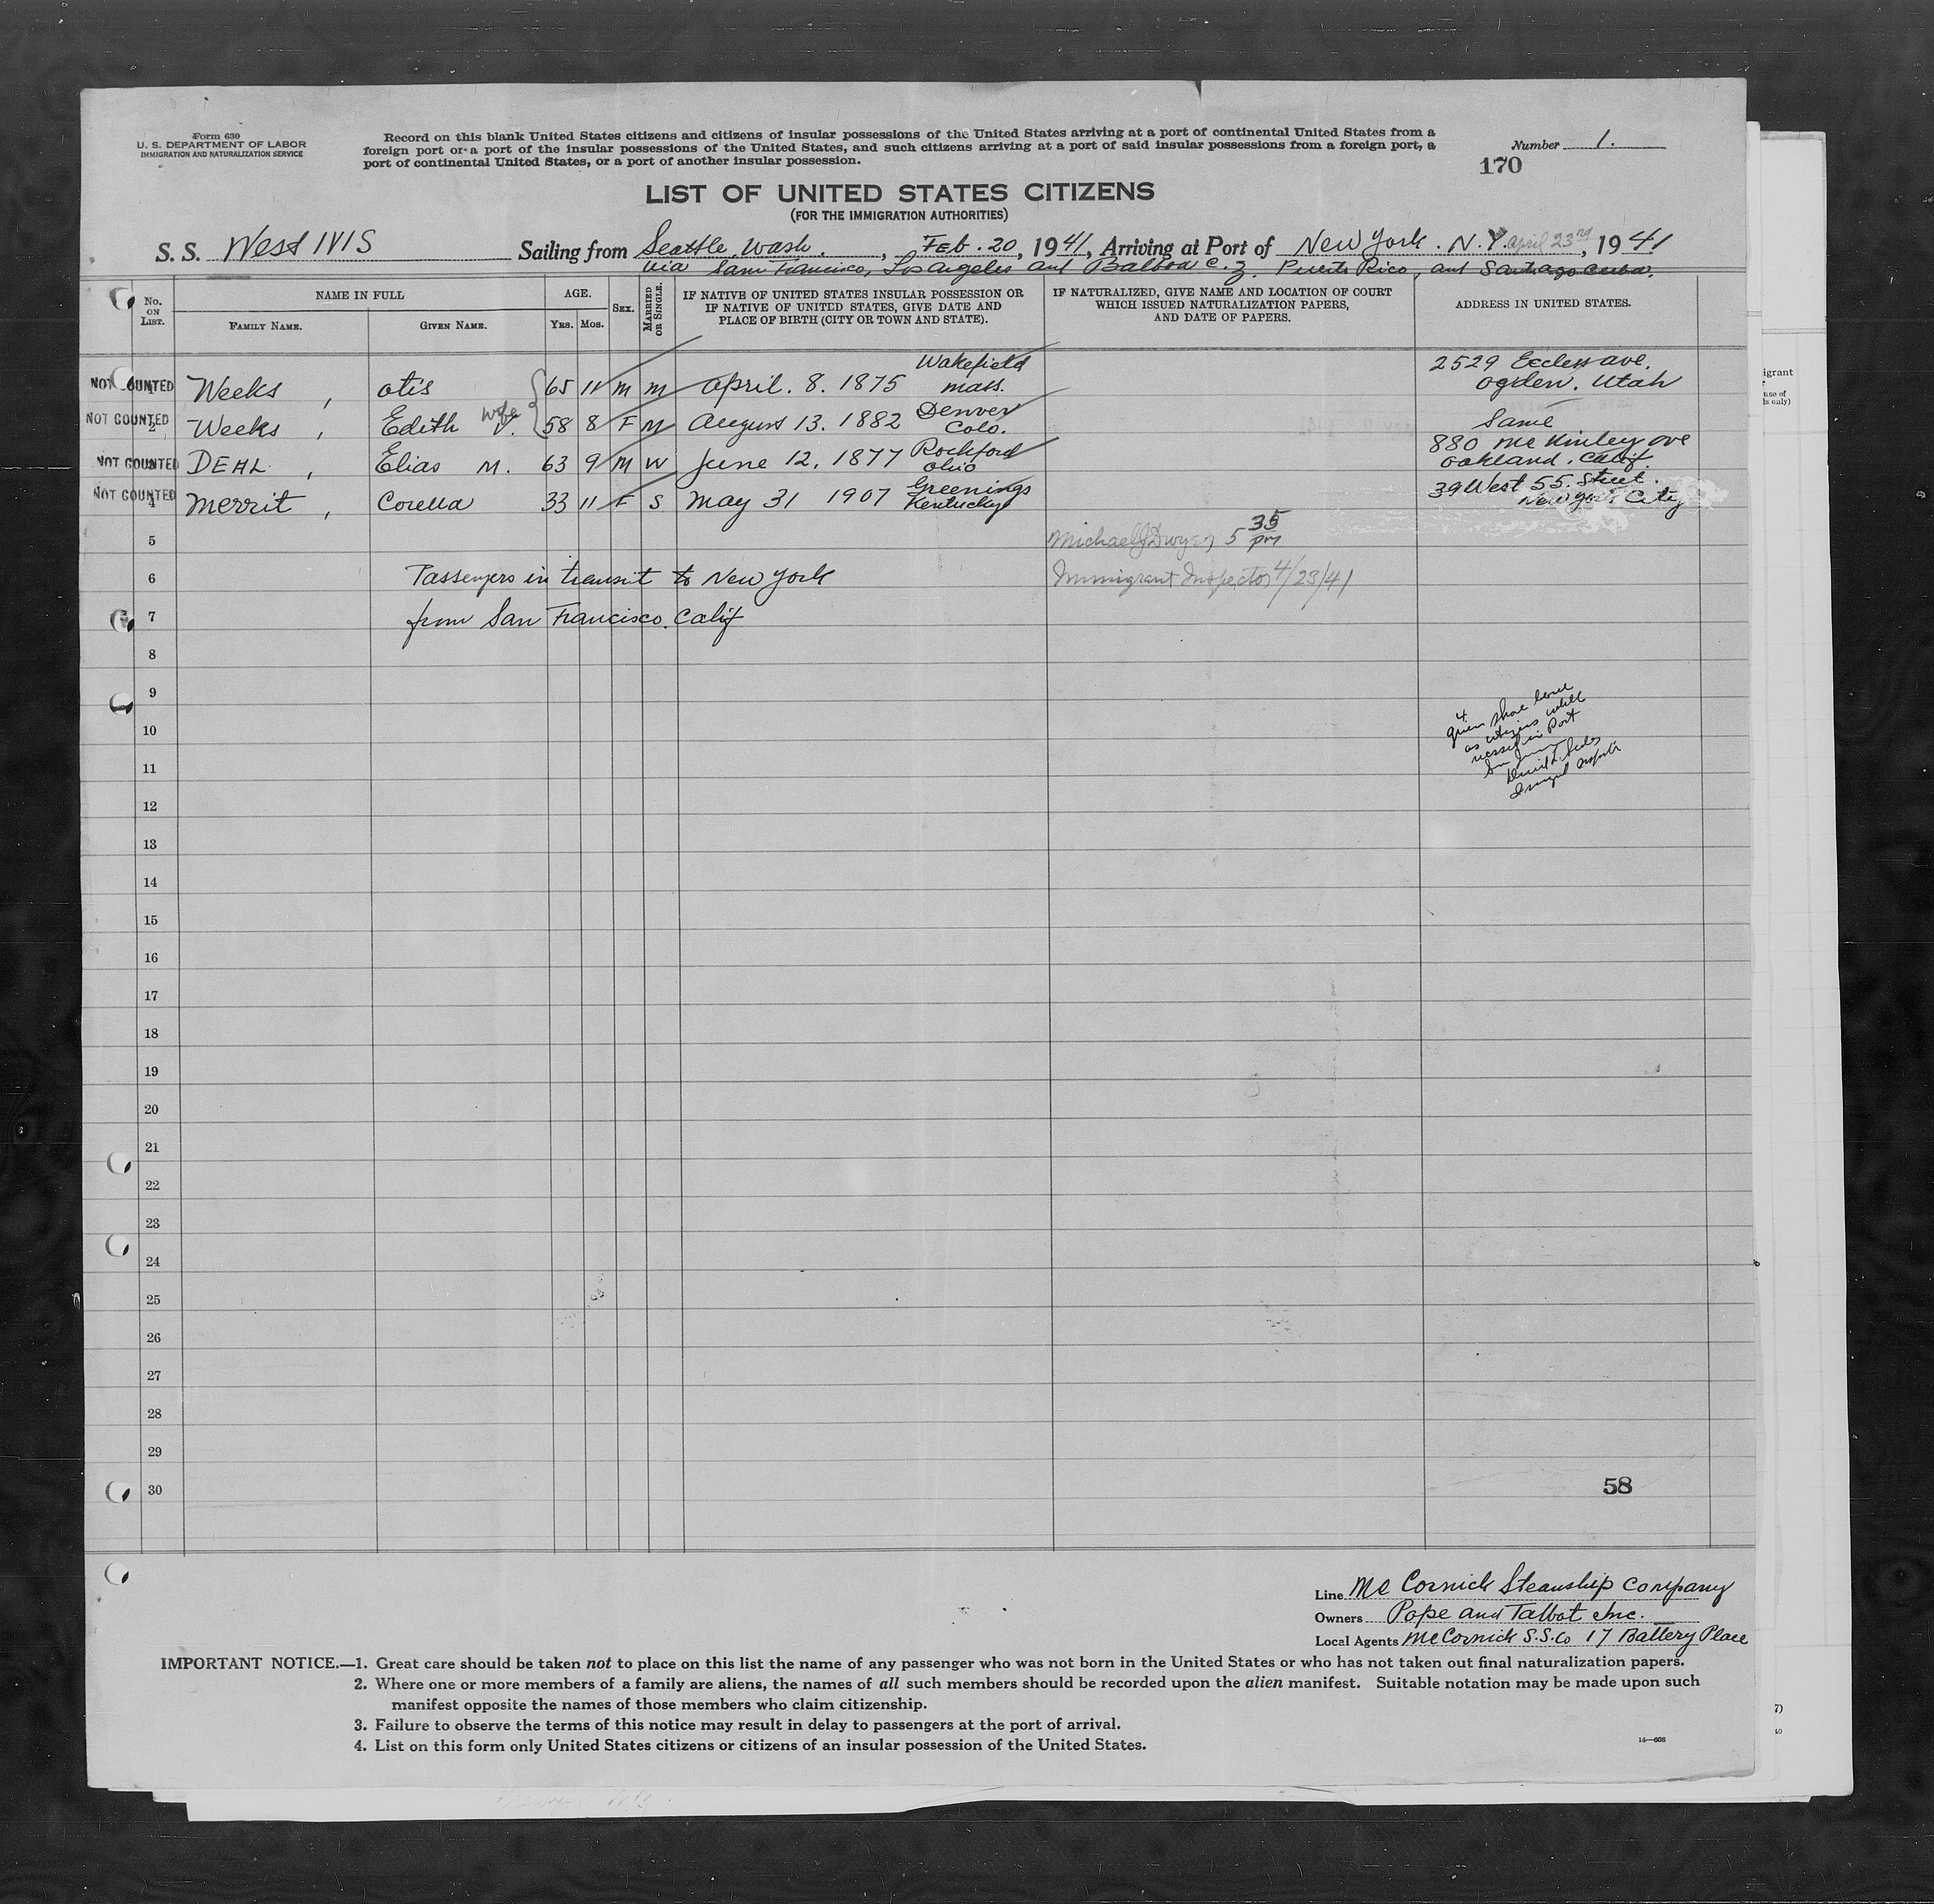 Form 630
U. S. DEPARTMENT OF LABOR
IMMIGRATION AND NATURALIZATION SERVICE
Record on this blank United States citizens and citizens of insular possessions of the United States arriving at a port of continental United States from a
foreign port or a port of the insular possessions of the United States, and such citizens arriving at a port of said insular possessions from a foreign port, a
port of continental United States, or a port of another insular possession.
Number 1.
170
LIST OF UNITED STATES CITIZENS
(FOR THE IMMIGRATION AUTHORITIES)
S. S. West IVIS Sailing from Seattle, Wash., Feb. 20, 1941, Arriving at Port of New York. N.Y. april 23rd, 1941
via San Francisco, Los Angeles and Balboa C.Z. Puerto Rico, and Santiago Cuba.
No. ON LIST. NAME IN FULL FAMILY NAME. GIVEN NAME. AGE. YRS. MOS. SEX. MARRIED OR SINGLE. IF NATIVE OF UNITED STATES INSULAR POSSESSION OR IF NATIVE OF UNITED STATES, GIVE DATE AND PLACE OF BIRTH (CITY OR TOWN AND STATE). IF NATURALIZED, GIVE NAME AND LOCATION OF COURT WHICH ISSUED NATURALIZATION PAPERS, AND DATE OF PAPERS. ADDRESS IN UNITED STATES.
NOT COUNTED 1 Weeks, otis 65 11 m m april. 8. 1875 Wakefield mass. 2529 Eccless ave. ogden. Utah
NOT COUNTED 2 Weeks, Edith V. wife 58 8 F M august 13. 1882 Denver Colo. Same
NOT COUNTED DEAL, Elias M. 63 9 M W June 12, 1877 Rockford ohio 880 Mc Kinley ave oakland. Calif.
NOT COUNTED 4 Merrit, Corella 33 11 F S May 31 1907 Greenings Kentucky 39 West 55. Street. New York City
5 Michael J Dwyer 5 35 pm
6 Passengers in transit to New York Immigrant Inspector 4/23/41
7 from San Francisco. Calif
8
9
10
11
12
13
14
15
16
17
18
19
20
21
22
23
24
25
26
27
28
29
30
4
given shore leave
as citizens while
vessel in Port
San Juan
58
Line Mc Cormick Steamship Company
Owners Pope and Talbot Inc.
Local Agents McCormick S.S. Co 17 Battery Place
IMPORTANT NOTICE.—1. Great care should be taken not to place on this list the name of any passenger who was not born in the United States or who has not taken out final naturalization papers.
2. Where one or more members of a family are aliens, the names of all such members should be recorded upon the alien manifest. Suitable notation may be made upon such
manifest opposite the names of those members who claim citizenship.
3. Failure to observe the terms of this notice may result in delay to passengers at the port of arrival.
4. List on this form only United States citizens or citizens of an insular possession of the United States.
14—608